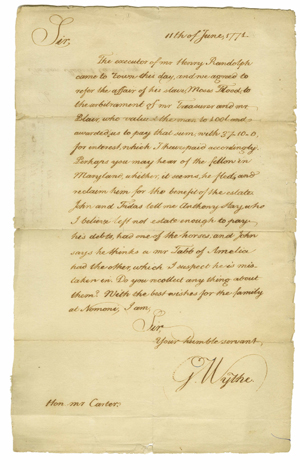 11th of June, 1771.
Sir,
The executor of mr Henry Randolph
came to Town this day, and we agreed to
refer the affair of his slave, Moses Flood, to
the arbitrament of mr Treasurer and mr
Blair, who valued the man to 100l and
awarded us to pay that sum, with
for interest, which I have paid accordingly.
Perhaps you may hear of the fellow in
Maryland, whither, it seems, he fled, and
reclaim him for the benefit of the estate.
John and tell me Anthony Hay, who
I believe left not estate enough to pay
his debts, had one of the horns, and John
says he thinks a mr Tabb of Amelia
had the other, which I suspect he is mis-
taken in. Do you recollect any thing about
them? With the best wishes for the family
at Nomoni, I am,
Sir,
Your humble servant,
G Wythe
Hon. mr Carter.